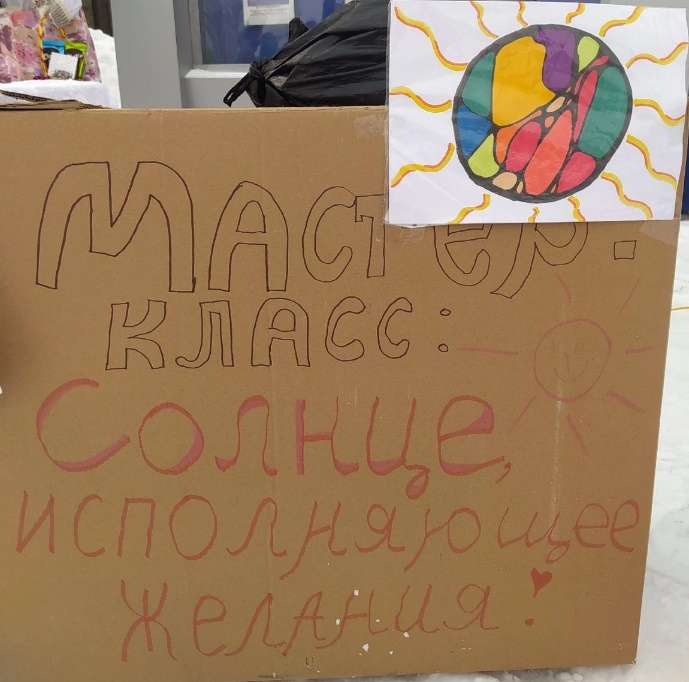 Мастер-
класс:
Солнце,
исполняющее
желания!